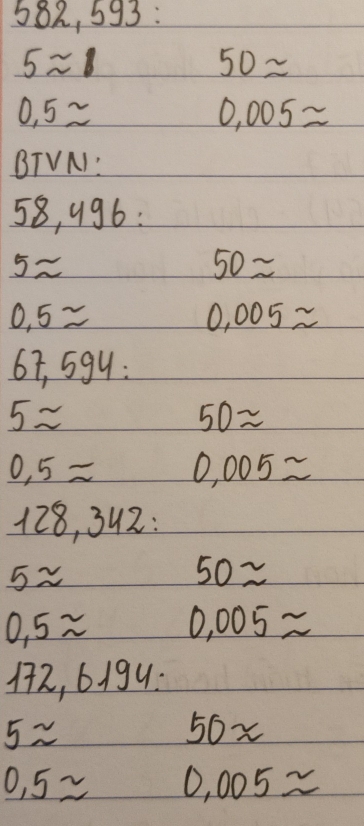 582,593:
5≈1 50≈
0,5≈ 0,005≈
BTVN:
58,496:
5≈ 50≈
0,5≈ 0,005≈
67,594:
5≈ 50≈
0,5≈ 0,005≈
128,342:
5≈ 50≈
0,5≈ 0,005≈
172,6194:
5≈ 50≈
0,5≈ 0,005≈